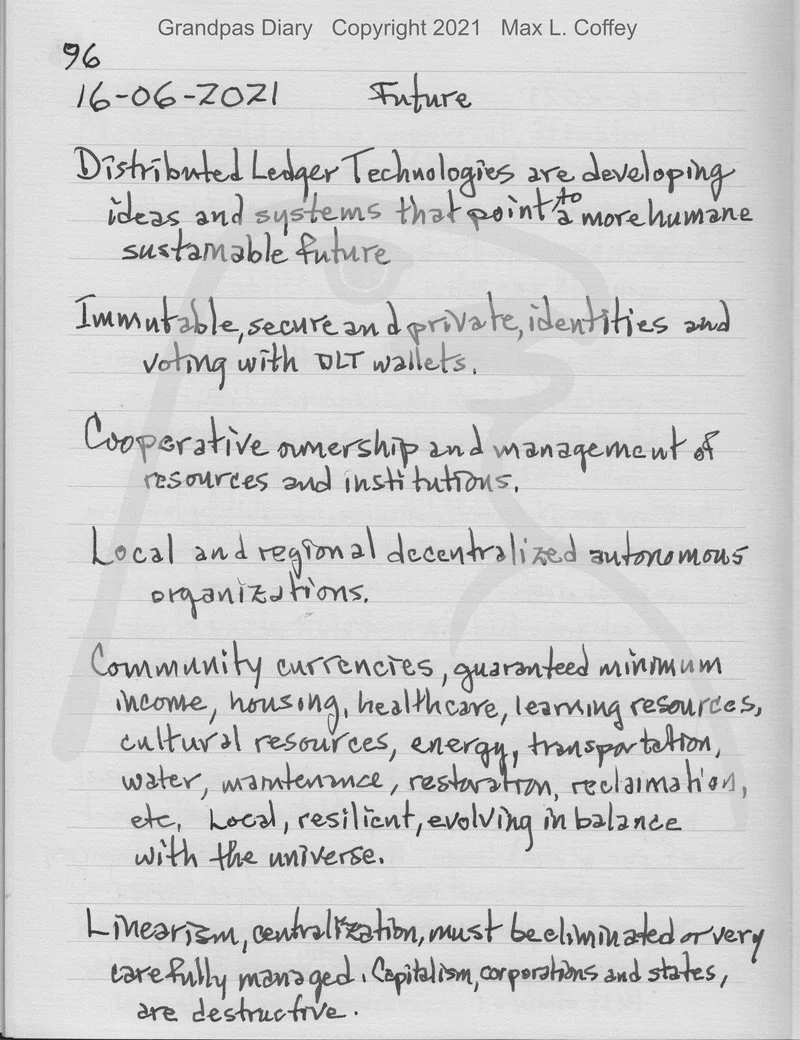 Grandpas Diary Copyright 2021 Max L. Coffey
96
16-06-2021 Future
Distributed Ledger Technologies are developing
ideas and systems that point to a more humane
sustainable future
Immutable, secure and private, identities and
voting with DLT wallets.
Cooperative ownership and management of
resources and institutions.
Local and regional decentralized autonomous
organizations.
Community currencies, guaranteed minimum
income, housing, healthcare, learning resources,
cultural resources, energy, transportation,
water, maintenance, restoration, reclaimation,
etc. Local, resilient, evolving in balance
with the universe.
Linearism, centralization, must be eliminated or very
carefully managed. Capitalism, corporations and states,
are destructive.